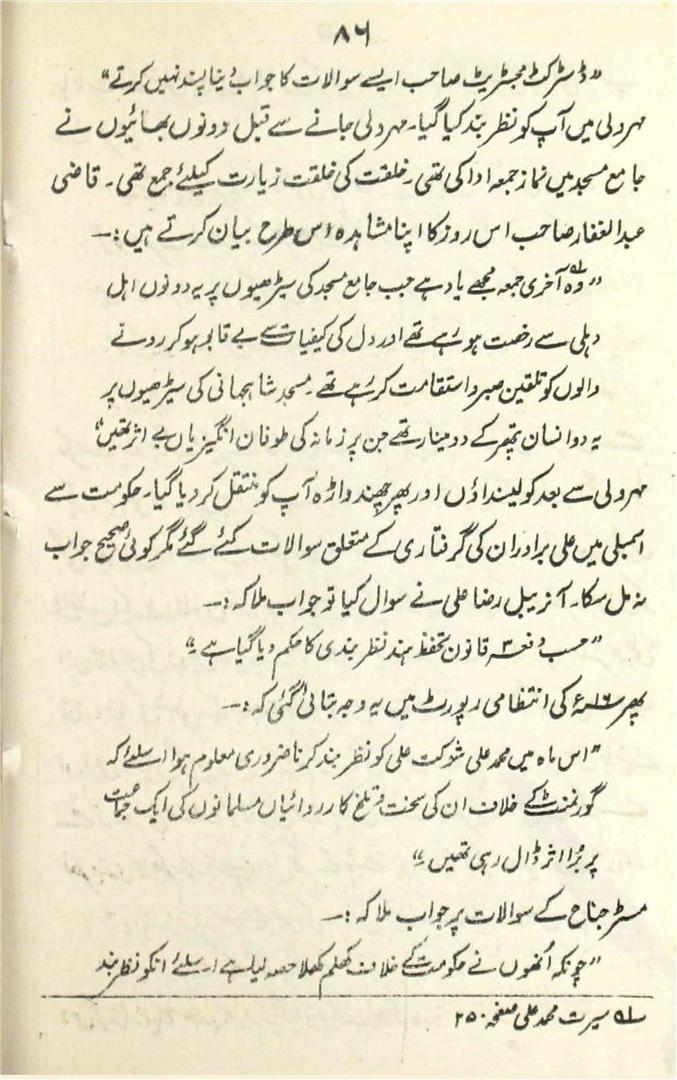 ۸۶
"ڈسٹرکٹ مجسٹریٹ صاحب ایسے سوالات کا جواب دینا پسند نہیں کرتے"
مہرولی میں آپ کو نظر بند کیا گیا۔ مہرولی جانے سے قبل دونوں بھائیوں نے
جامع مسجد میں نماز جمعہ ادا کی تھی۔ خلقت کی خلقت زیارت کیلئے جمع تھی۔ قاضی
عبدالغفار صاحب اس روز کا اپنا مشاہدہ اس طرح بیان کرتے ہیں:۔
"وہ لہ آخری جمعہ مجھے یاد ہے جب جامع مسجد کی سیڑھیوں پر یہ دونوں اہل
دہلی سے رخصت ہو رہے تھے اور دل کی کیفیات سے بے قابو ہو کر رونے
والوں کو تلقین صبر و استقامت کر رہے تھے۔ مسجد شاہجہانی کی سیڑھیوں پر
یہ دو انسان پتھر کے دو مینار تھے جن پر زمانہ کی طوفان انگیزیاں بے اثر تھیں"
مہرولی سے بعد کو لینڈاؤں اور پھر چھندواڑہ آپ کو منتقل کر دیا گیا۔ حکومت سے
اسمبلی میں علی برادران کی گرفتاری کے متعلق سوالات کئے گئے مگر کوئی صحیح جواب
نہ مل سکا۔ آنریبل رضا علی نے سوال کیا تو جواب ملا کہ:۔
"حسب دفعہ ۳ قانون تحفظ ہند نظر بندی کا حکم دیا گیا ہے۔"
پھر ۱۶ء کی انتظامی رپورٹ میں یہ وجہ بتائی گئی کہ:۔
"اس ماہ میں محمد علی شوکت علی کو نظر بند کرنا ضروری معلوم ہوا اسلئے کہ
گورنمنٹ کے خلاف ان کی سخت و تلخ کارروائیاں مسلمانوں کی ایک جماعت
پر بُرا اثر ڈال رہی تھیں۔"
مسٹر جناح کے سوالات پر جواب ملا کہ:۔
"چونکہ اُنھوں نے حکومت کے خلاف کھلم کھلا حصہ لیا ہے اسلئے انکو نظر بند
لہ سیرت محمد علی صفحہ ۲۵۰